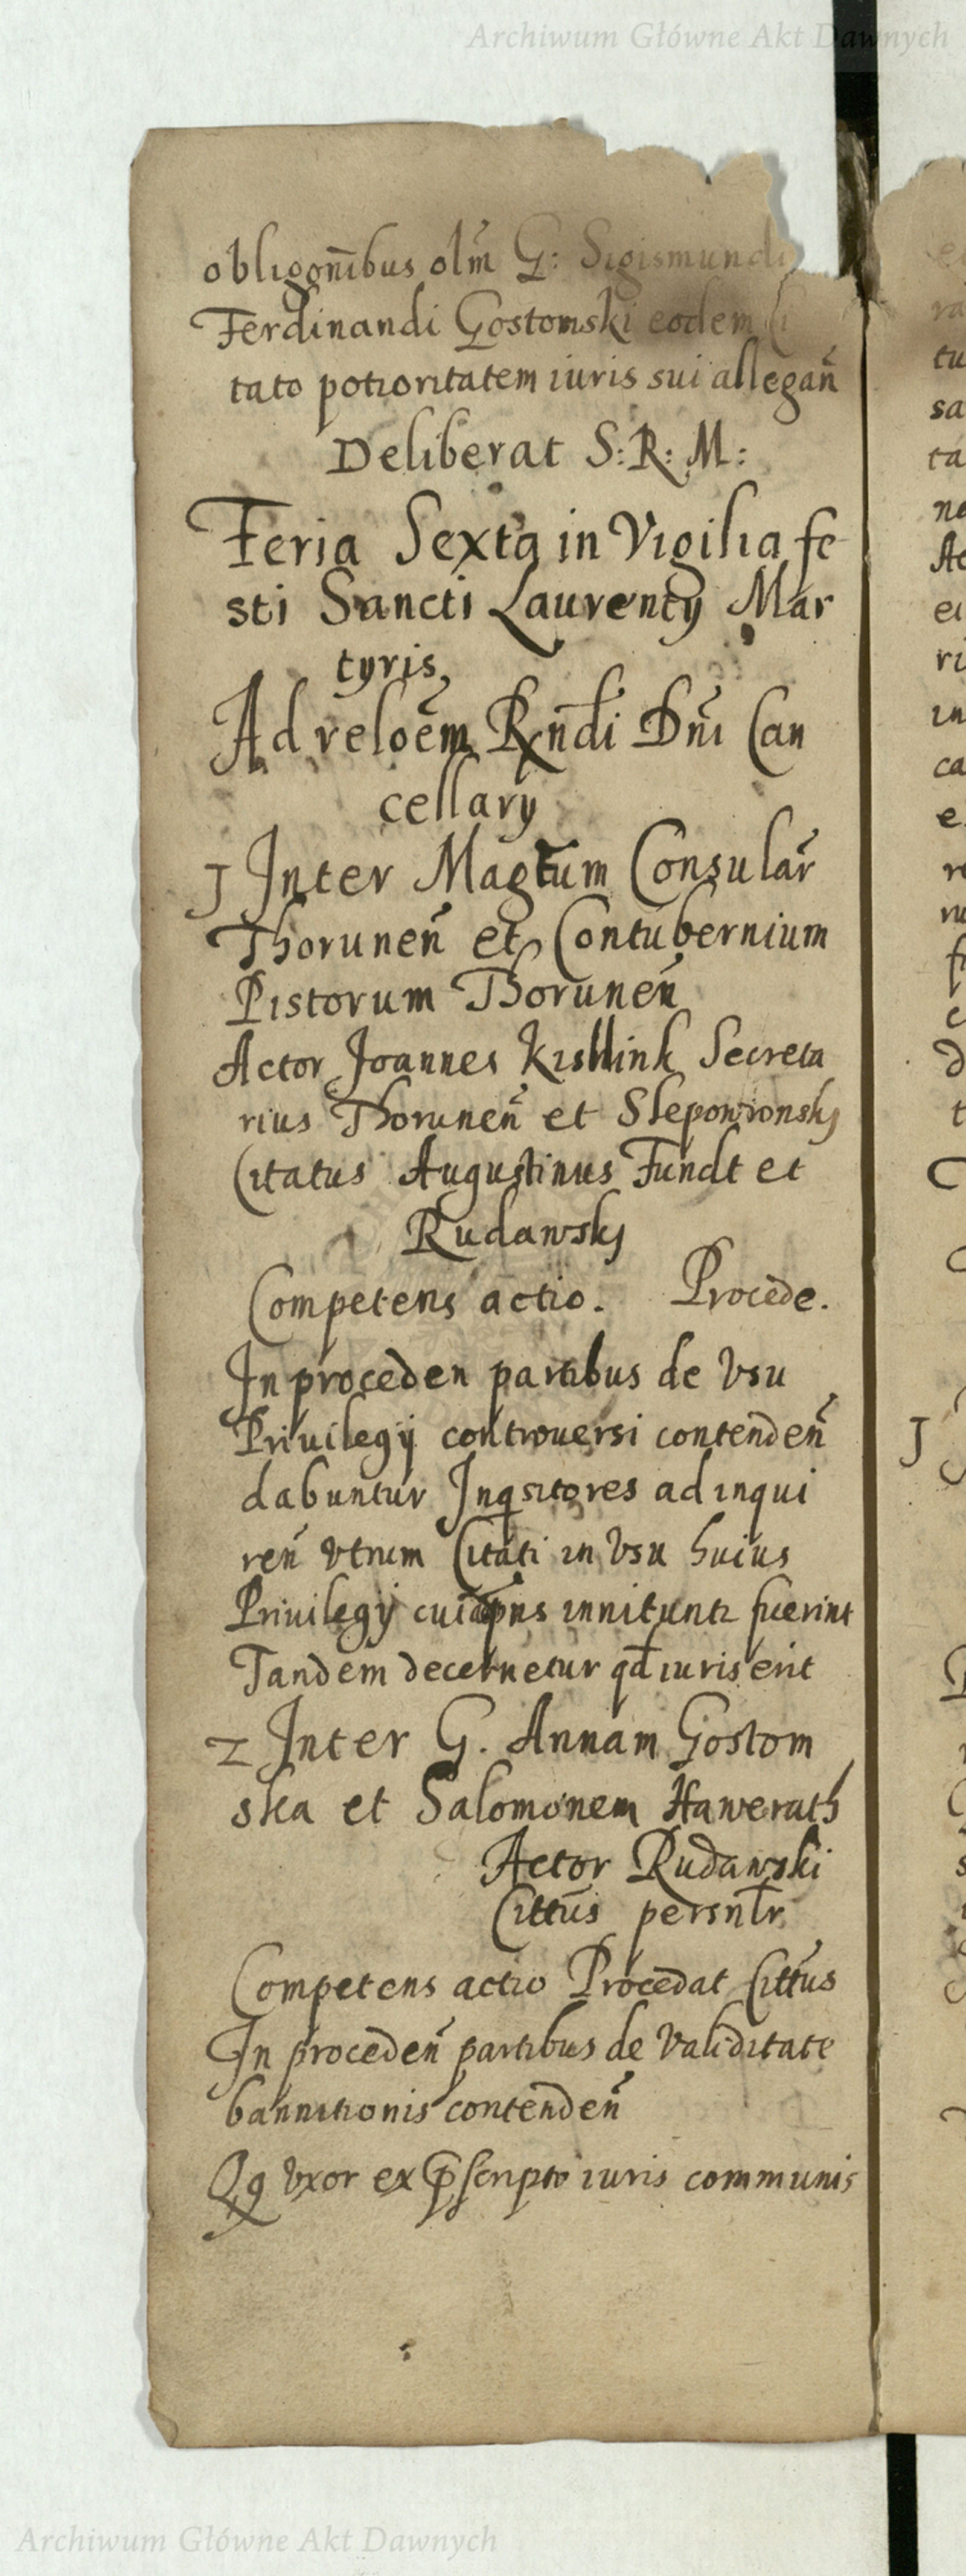 Archiwum Główne Akt Dawnych
obligon̄ibus olm̄ G: Sigismundi
Ferdinandi Gostomski eodem Ci
tato potioritatem iuris sui allegan̄
Deliberat S: R: M:
Feria Sexta in Vigilia fe
sti Sancti Laurentij Mar
tyris
Ad reloēm Rn̄di Dn̄i Can
cellary
J Inter Magtum Consular̄
Thorunen̄ et Contubernium
Pistorum Thorunen̄
Actor Joannes Kisllink Secreta
rius Thorunen̄ et Slepowronskj
Citatus Augustinus Fundt et
Rudawskj
Competens actio. Procede.
In proceden partibus de Vsu
Priuilegij controuersi contenden̄
dabuntur Inqsitores ad inqui
ren̄ vtrum Citati in Vsu huius
Priuilegij innitunt fuerint
Tandem decernetur qd̄ iuris erit
2 Inter G. Annam Gostom
ska et Salomonem Hawerath
Actor Rudawski
Citt̄us persnl̄r
Competens actio Procedat Citt̄us
In proceden̄ partibus de Validitate
bannitionis contenden̄
Qq Vxor ex p̄scripto iuris communis
Archiwum Główne Akt Dawnych